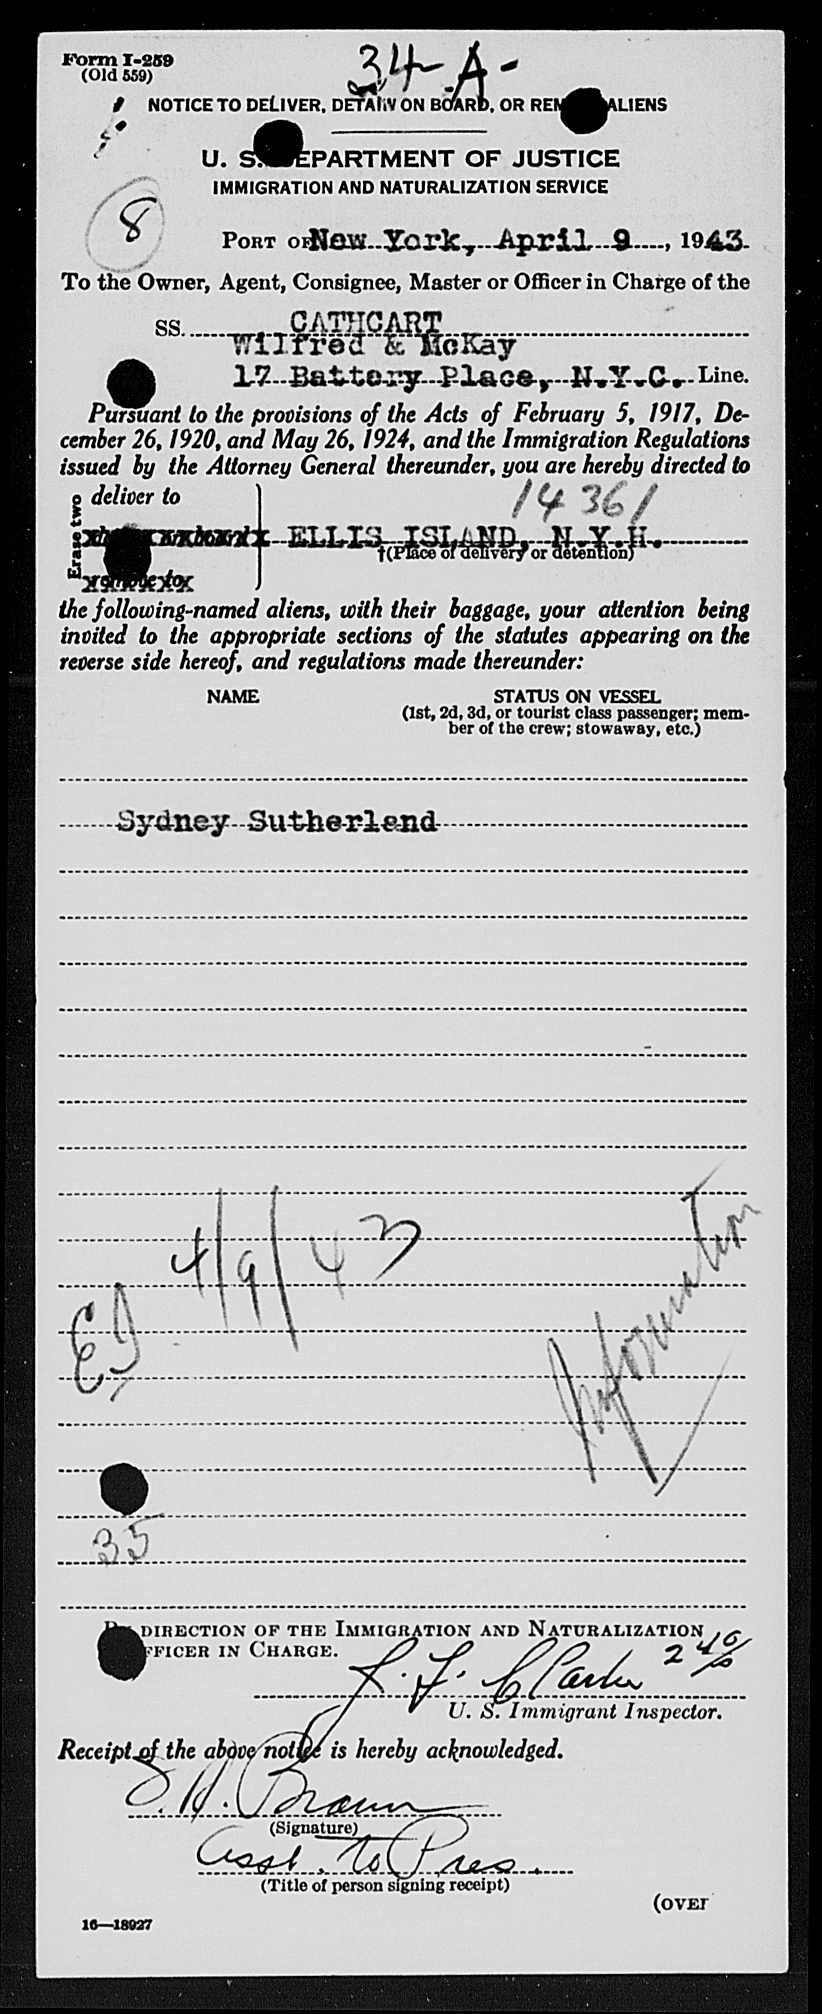 Form I-259
(Old 559)
34-A-
NOTICE TO DELIVER, DETAIN ON BOARD, OR REM ALIENS
U. S. DEPARTMENT OF JUSTICE
IMMIGRATION AND NATURALIZATION SERVICE
8
PORT OF New York, April 9, 1943.
To the Owner, Agent, Consignee, Master or Officer in Charge of the
SS. CATHCART
Wilfred & McKay
17 Battery Place, N.Y.C. Line.
Pursuant to the provisions of the Acts of February 5, 1917, De-
cember 26, 1920, and May 26, 1924, and the Immigration Regulations
issued by the Attorney General thereunder, you are hereby directed to
deliver to
14361
Erase two
ELLIS ISLAND, N.Y.H.
†(Place of delivery or detention)
the following-named aliens, with their baggage, your attention being
invited to the appropriate sections of the statutes appearing on the
reverse side hereof, and regulations made thereunder:
NAME STATUS ON VESSEL
(1st, 2d, 3d, or tourist class passenger; mem-
ber of the crew; stowaway, etc.)
Sydney Sutherland
4/9/43
EI
Information
35
BY DIRECTION OF THE IMMIGRATION AND NATURALIZATION
OFFICER IN CHARGE.
U. S. Immigrant Inspector.
Receipt of the above notice is hereby acknowledged.
(Signature)
Asst. to Pres.
(Title of person signing receipt)
(OVER
16—18927